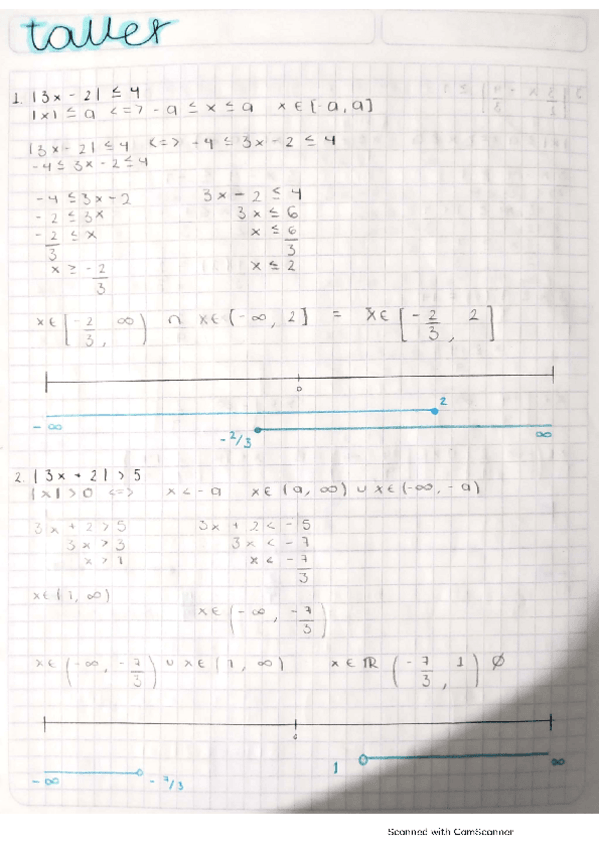 taller
1. |3x - 2| ≤ 4
|x| ≤ a <=> -a ≤ x ≤ a x ∈ [-a, a]
|3x - 2| ≤ 4 <=> -4 ≤ 3x - 2 ≤ 4
-4 ≤ 3x - 2 ≤ 4
-4 ≤ 3x - 2 3x - 2 ≤ 4
-2 ≤ 3x 3x ≤ 6
-2/3 ≤ x x ≤ 6/3
x ≥ -2/3 x ≤ 2
x ∈ [-2/3, ∞) ∩ x ∈ (-∞, 2] = x ∈ [-2/3, 2]
0
-∞ 2
-2/3 ∞
2. |3x + 2| > 5
|x| > 0 <=> x < -a x ∈ (a, ∞) ∪ x ∈ (-∞, -a)
3x + 2 > 5 3x + 2 < -5
3x > 3 3x < -7
x > 1 x < -7/3
x ∈ (1, ∞)
x ∈ (-∞, -7/3)
x ∈ (-∞, -7/3) ∪ x ∈ (1, ∞) x ∈ ℝ (-7/3, 1) ∅
0
1 ∞
-∞ -7/3
Scanned with CamScanner